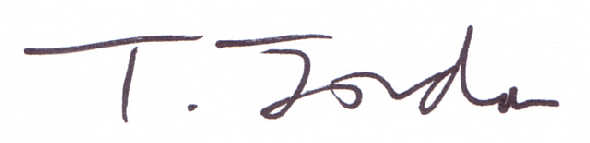 T. Jordan